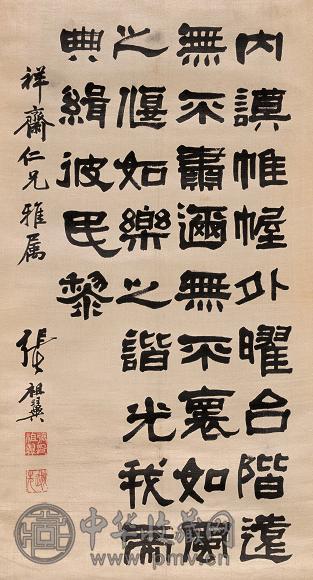 内謨帷幄外曜台階遠
無不肅邇無不褱如風
之偃如樂之諧光我帝
典緝彼民黎
祥齋仁兄雅属
張祖翼
中华收藏网
www.pmv.cn